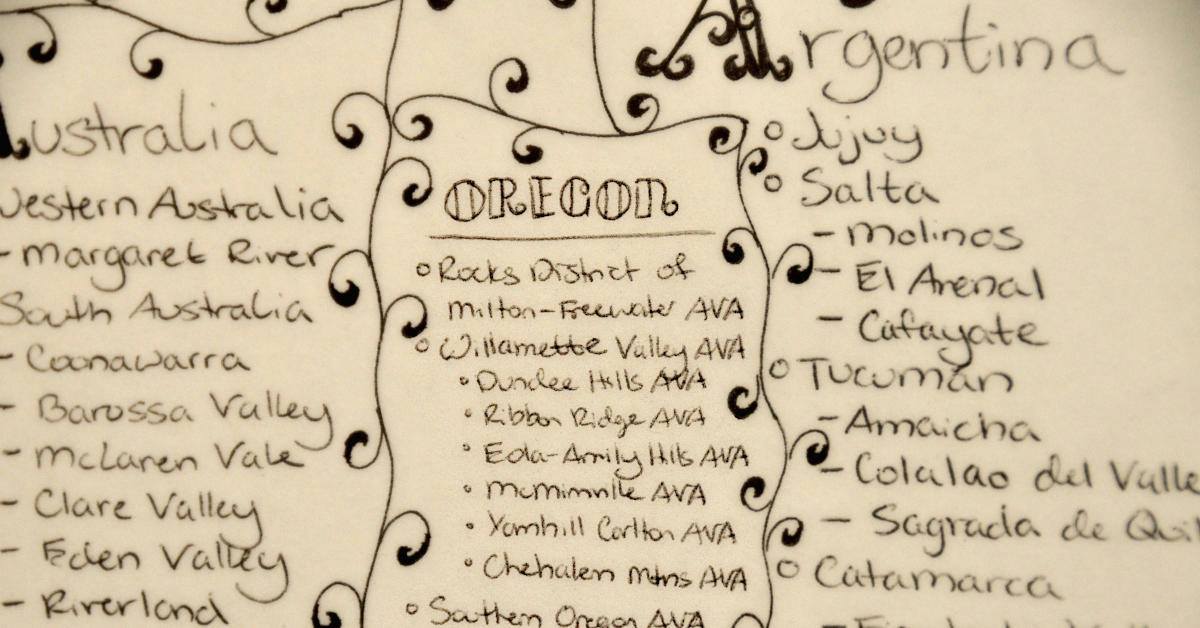 Australia
Western Australia
- Margaret River
South Australia
- Coonawarra
- Barossa Valley
- McLaren Vale
- Clare Valley
- Eden Valley
- Riverland
OREGON
Rocks District of
Milton-Freewater AVA
Willamette Valley AVA
Dundee Hills AVA
Ribbon Ridge AVA
Eola-Amity Hills AVA
McMinnville AVA
Yamhill Carlton AVA
Chehalem Mtns AVA
Southern Oregon AVA
Argentina
Jujuy
Salta
- Molinos
- El Arenal
- Cafayate
Tucumán
- Amaicha
- Colalao del Valle
- Sagrada de Quil
Catamarca